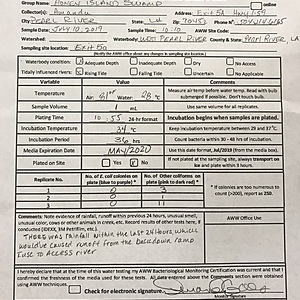 HONEY ISLAND SWAMP
online
City PEARL RIVER State LA Zip 70452
Sample Date JULY 10, 2019 Sample Time 10:10 AWW Site Code
Watershed WEST PEARL RIVER County & State
Sampling site location: EXIT 5A
(Notify the AWW office about any changes in sampling site location)
Waterbody condition: Adequate Depth Inadequate Depth Dry No Access
Tidally influenced rivers: Rising Tide Falling Tide Uncertain No Apparent Tide
Variable Value Comments
Temperature Air: 81° Water: 28 °C
Measure air temp before water temp. Read with bulb submerged if possible. Don't touch bulb.
Sample Volume 1 mL Use same volume for all replicates.
Plating Time 10:55 24-hr format Incubation begins when samples are plated.
Incubation Temperature °C Keep incubation temperature between 29 and 37°C.
Incubation Period 36 hrs Count bacteria within 30 - 48 hrs of incubation.
Media Expiration Date MAY/2020 Use this date format, Jul/2019 (from the media)
Plated on Site Yes No
If not plated at the sampling site, always transport on ice and plate within 6 hours
Replicate No. No. of E. coli colonies on plate (blue to purple) * No. of Other coliforms on plate (pink to dark red) *
1 0 3
2 0
3 0 11
* If colonies are too numerous to count (>200), report as 250.
Comments: Note evidence of rainfall, runoff within previous 24 hours, unusual smell, unusual color, cows or other animals in creek, etc. Record results of other tests here, if conducted (IDEXX, 3M Petrifilm, etc.).
AWW Office Use
THERE WAS RAINFALL WITHIN THE LAST 24 HOURS WHICH
WOULD CAUSED RUNOFF FROM THE BACKDOWN RAMP
USE TO ACCESS RIVER
I hereby declare that at the time of this water testing my AWW Bacteriological Monitoring Certification was current and that I
confirmed the freshness of the media used for these tests. All data entered above the Comments section were obtained
using AWW techniques.
Check for electronic signature.
Monitor signature